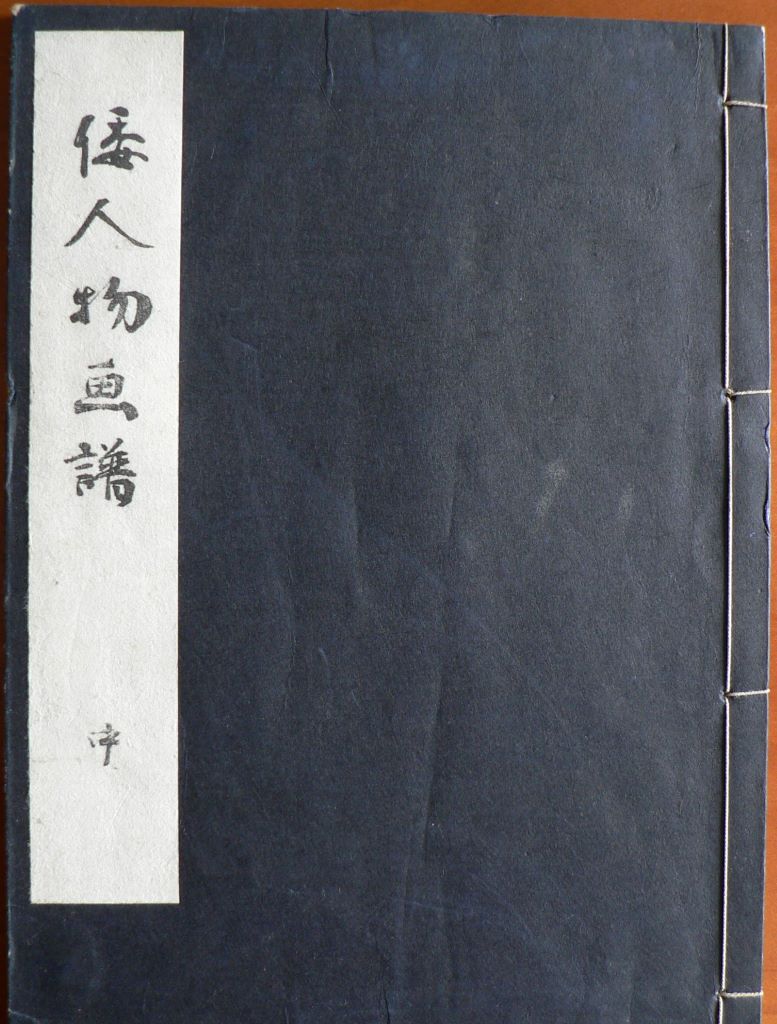 倭人物画譜
中